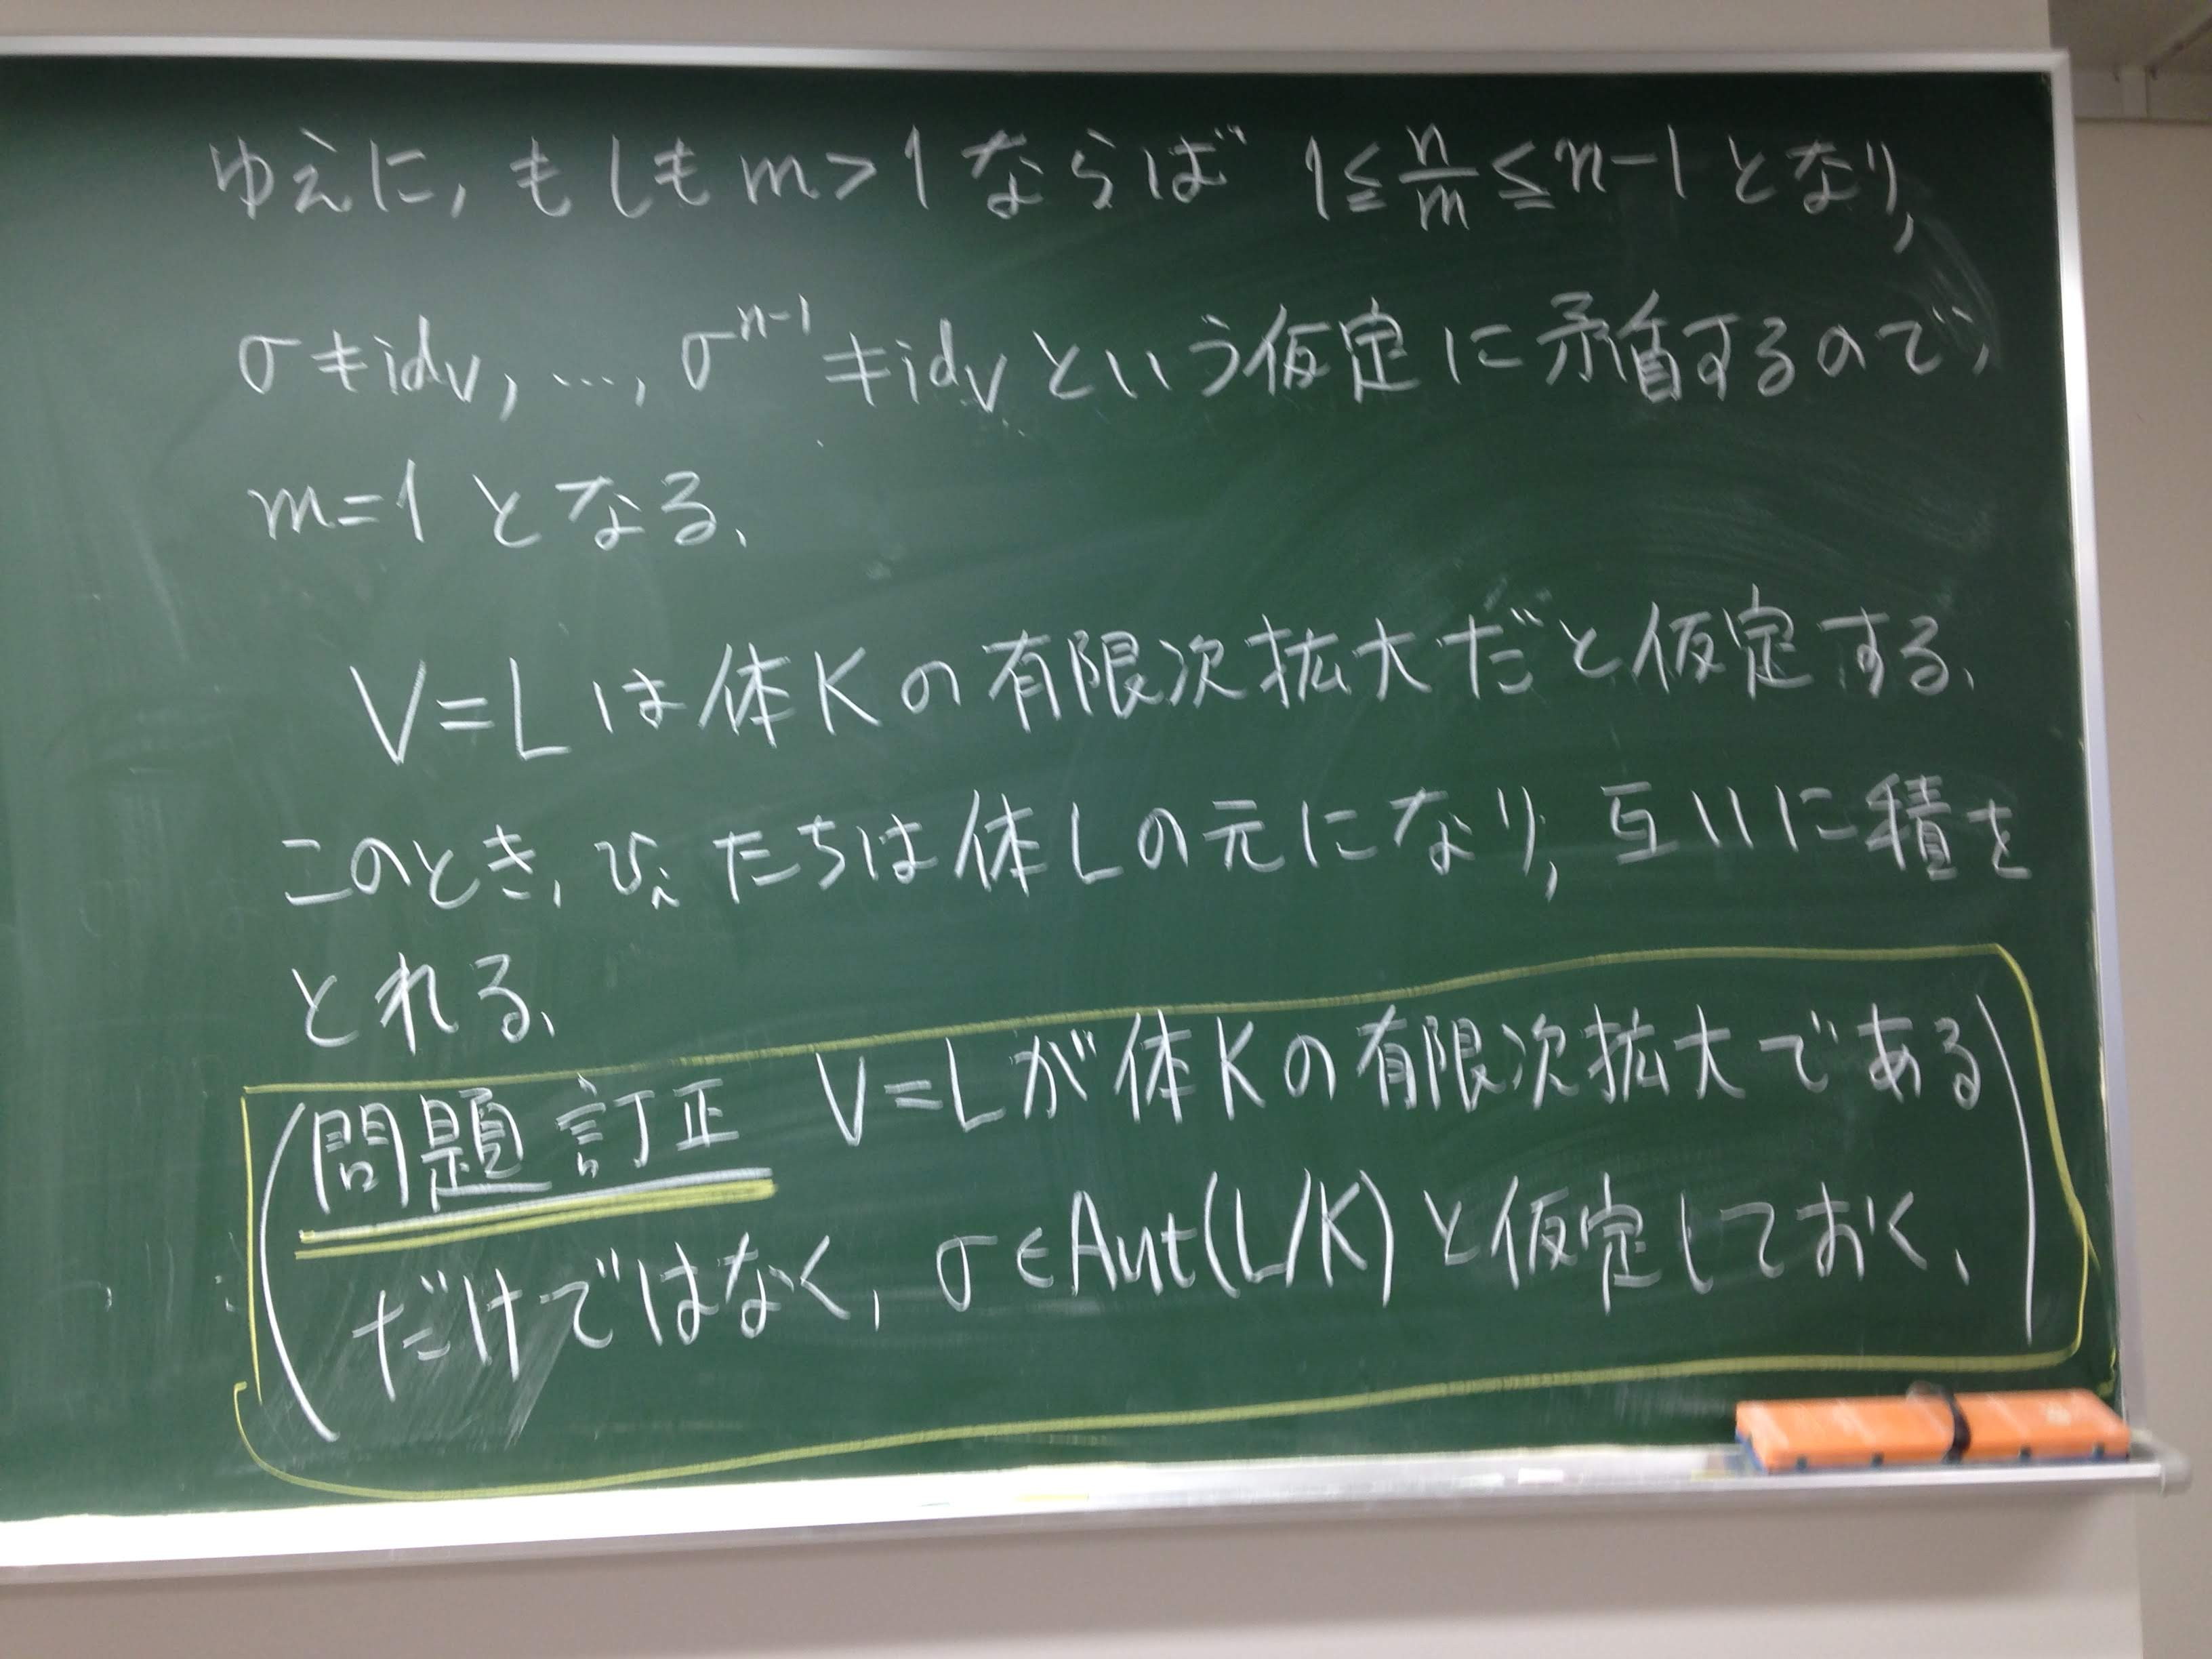 ゆえに, もしも m>1 ならば 1≦n/m≦n-1 となり,
σ≠id_V, …, σ^{n-1}≠id_V という仮定に矛盾するので,
m=1 となる.
V=L は体Kの有限次拡大だと仮定する.
このとき, v_i たちは体Lの元になり, 互いに積を
とれる.
(問題訂正 V=Lが体Kの有限次拡大である
だけではなく, σ∈Aut(L/K) と仮定しておく.)